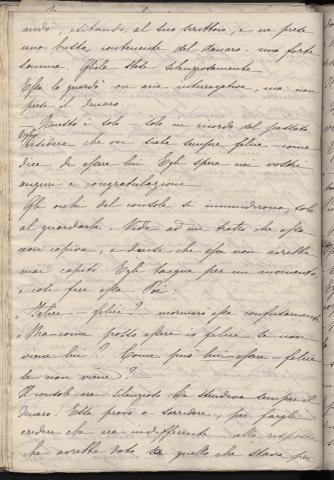 andò, esitando, al suo scrittoio, e ne prese
una busta, contenente del danaro - una forte
somma. Gliela stese silenziosamente
Essa lo guardò con aria interrogativa, ma non
prese il denaro.
— Questo è solo — solo in ricordo del passato.
Egli desidera che voi siate sempre felice — come
dice di essere lui. Egli spera nei vostri
auguri e congratulazione
Gli occhi del console si inumidirono, solo
al guardarla. Vide ad un tratto che essa
non capiva, e che essa non avrebbe
mai capito. Egli tacque per un momento,
e così fece essa. Poi:
" Felice — felice? — mormorò essa confusamente
Ma come posso essere io felice se non
viene lui? Come può lui essere felice
se non viene?
Il console era silenzioso. Le stendeva sempre il
denaro! Essa provò a sorridere, per fargli
credere che era indifferente alla risposta
che avrebbe dato a quello che stava per